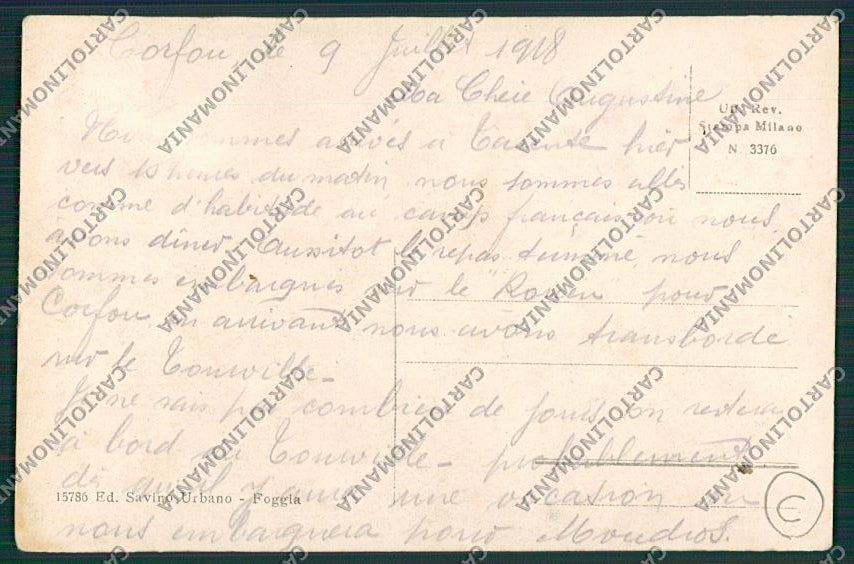 Corfou, le 9 Juillet 1918
Ma Chère Augustine
Uff. Rev.
Stampa Milano
N. 3376
Nous sommes arrivés à Tarente hier
vers 10 heures du matin, nous sommes allés
comme d'habitude au camp français où nous
avons dîner. Aussitot le repas terminé, nous
sommes embarqués sur le "Rouen" pour
Corfou en arrivant nous avons transbordé
sur le Tourville -
Je ne sais pas combien de jours on restera
à bord du Tourville - probablement
dè qu'il y aura une occasion on
15786 Ed. Savino Urbano - Foggia
nous embarquera pour Moudros.
E
CARTOLINOMANIA